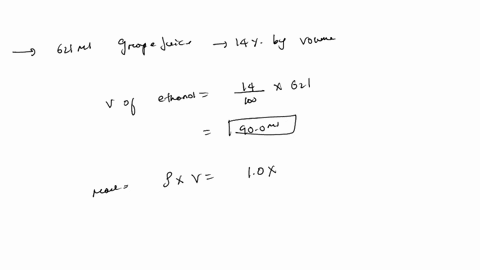 → 621 ml grape juice → 14 % by volume
V of ethanol = 14/100 × 621
= 90.0 ml
mass = ρ × V = 1.0 ×